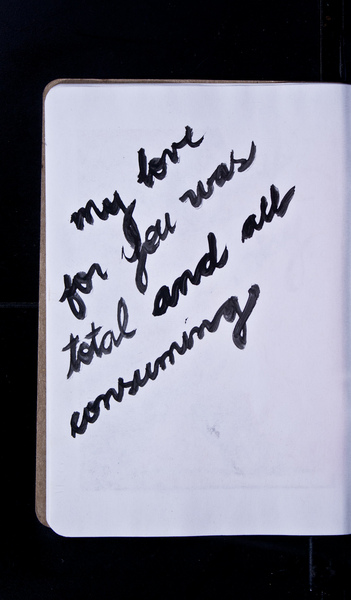 my love
for you was
total and all
consuming